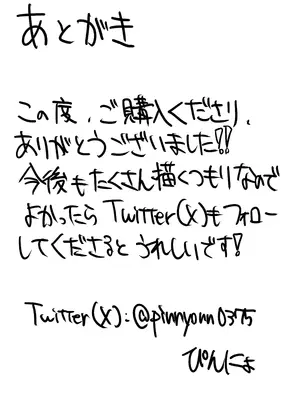 あとがき
この度、ご購入くださり、
ありがとうございました!!
今後もたくさん描くつもりなので
よかったらTwitter(X)もフォロー
してくださるとうれしいです!
Twitter(X):@pinnyonn0375
ぴんにょ